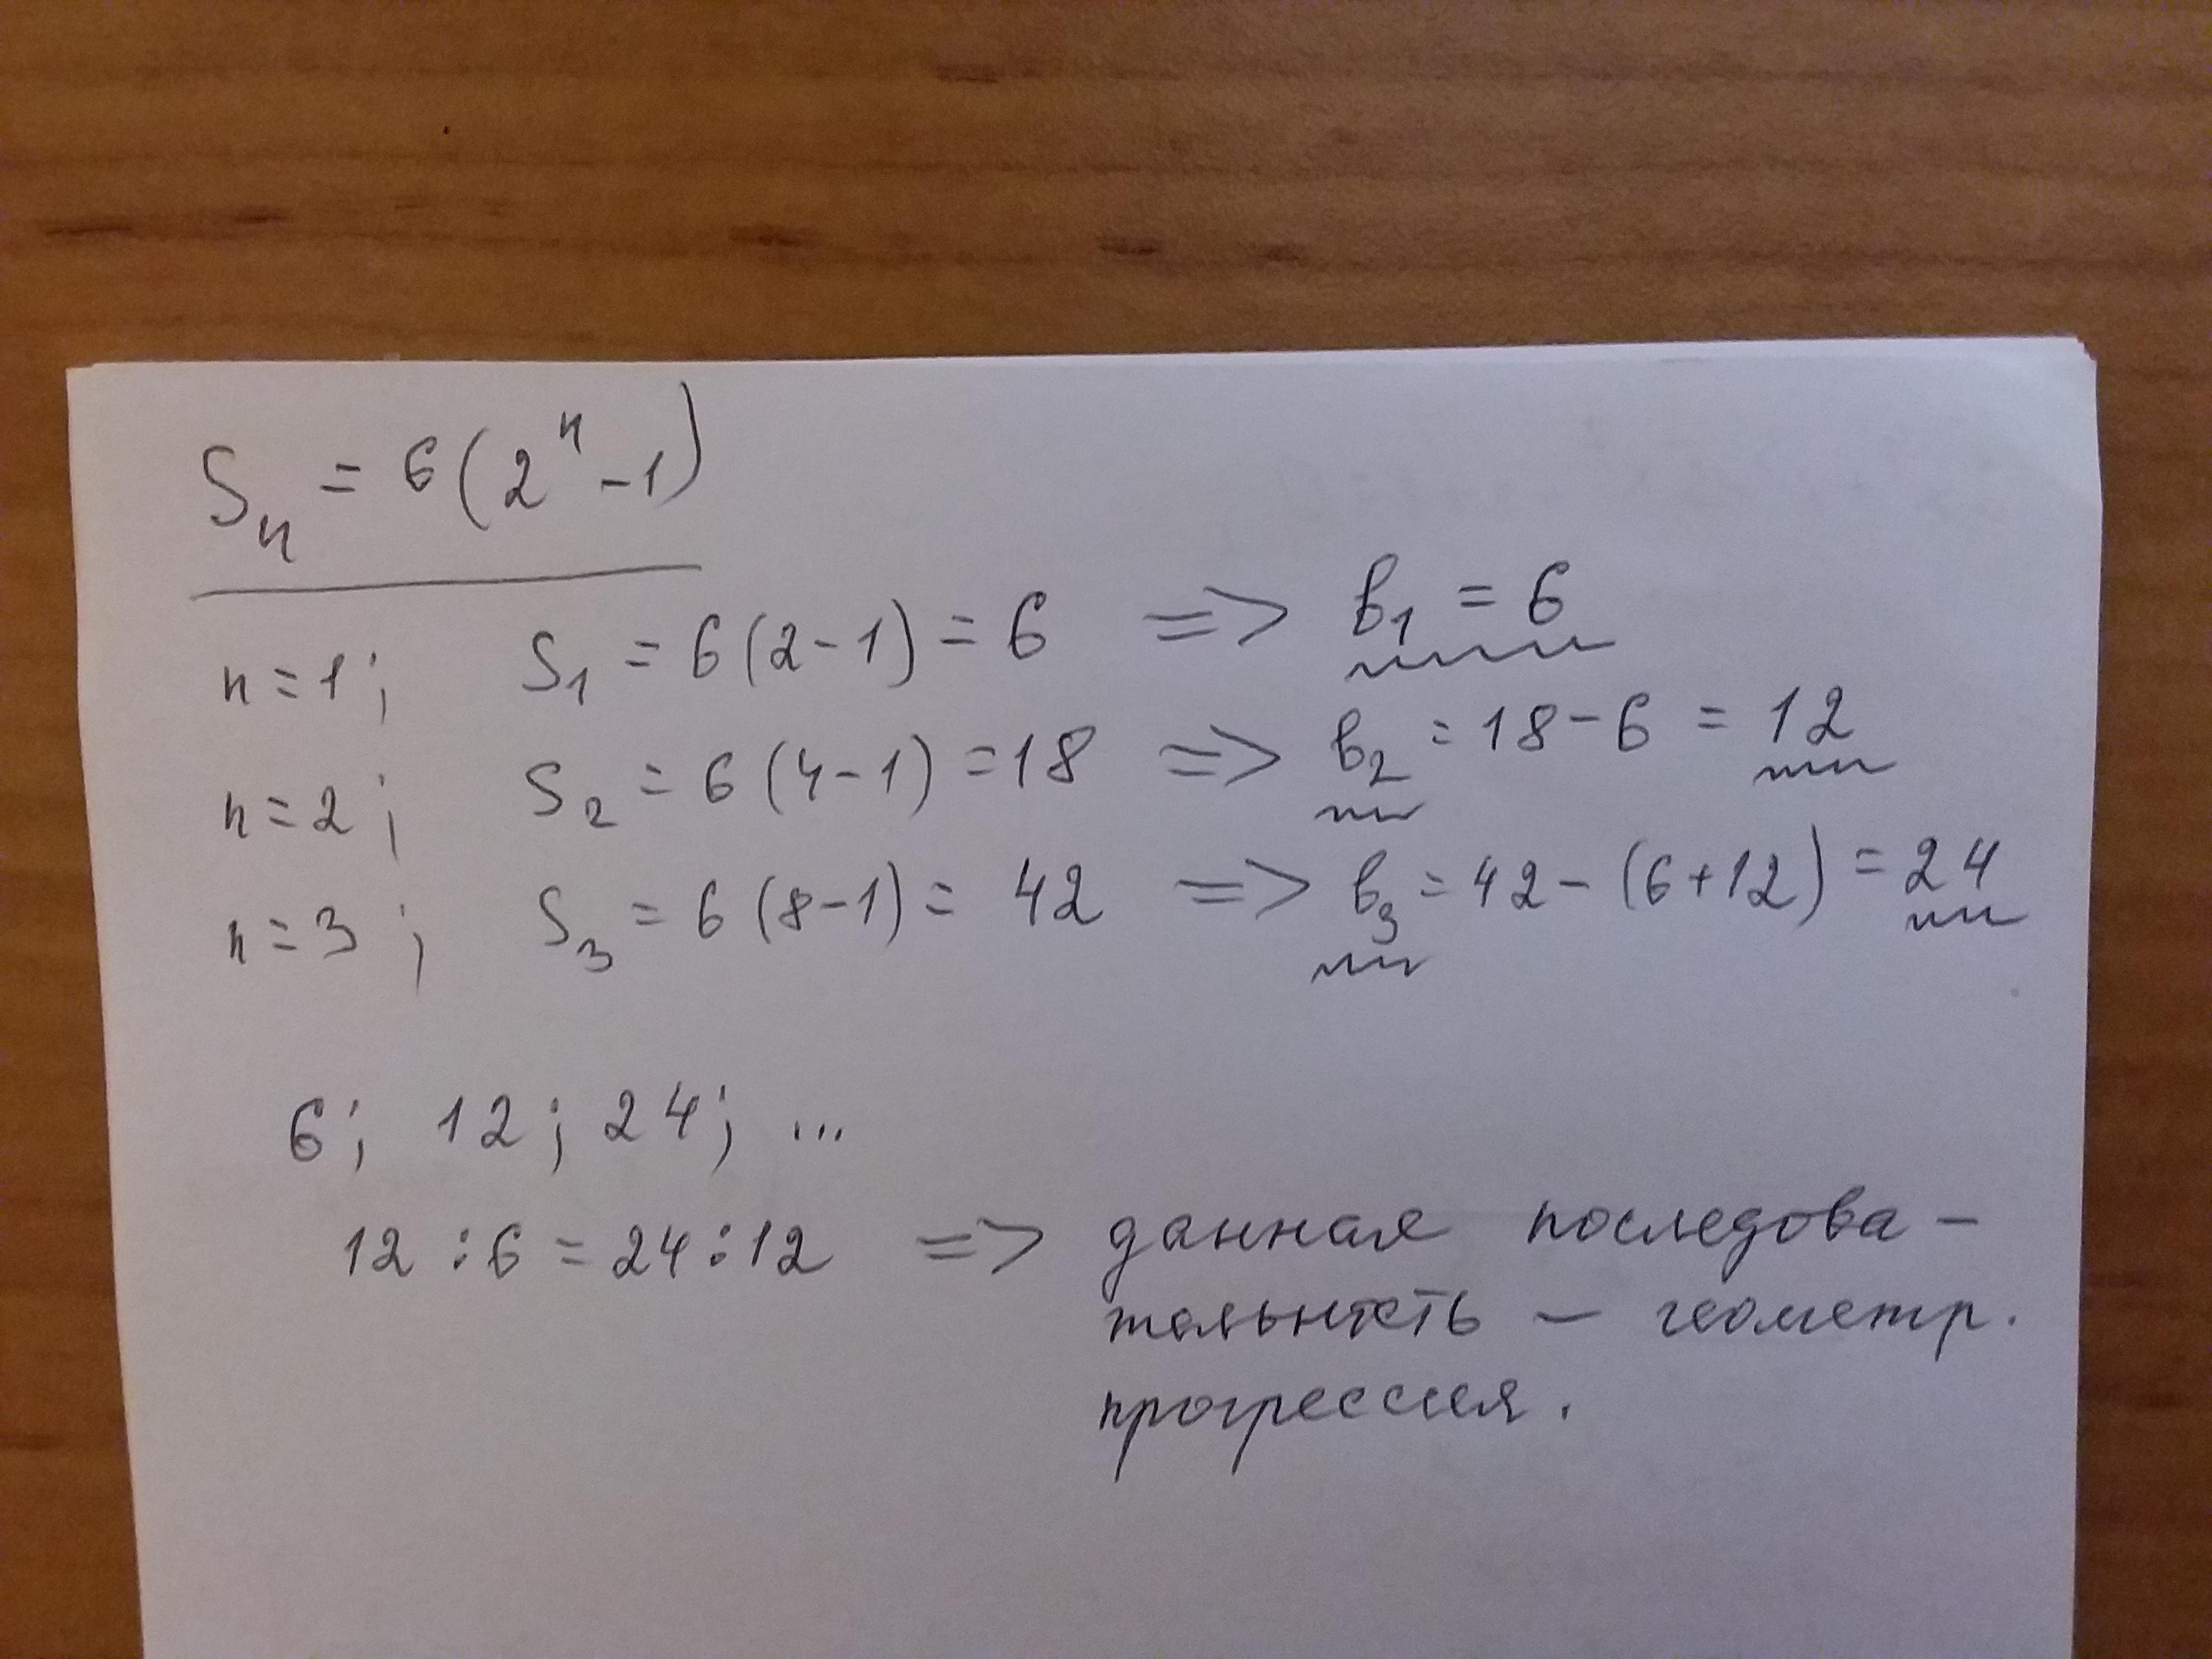 Sₙ = 6(2ⁿ - 1)
n = 1; S₁ = 6(2 - 1) = 6 => b₁ = 6
n = 2; S₂ = 6(4 - 1) = 18 => b₂ = 18 - 6 = 12
n = 3; S₃ = 6(8 - 1) = 42 => b₃ = 42 - (6 + 12) = 24
6; 12; 24; ...
12 : 6 = 24 : 12 => данная последова -
тельность - геометр.
прогрессия.